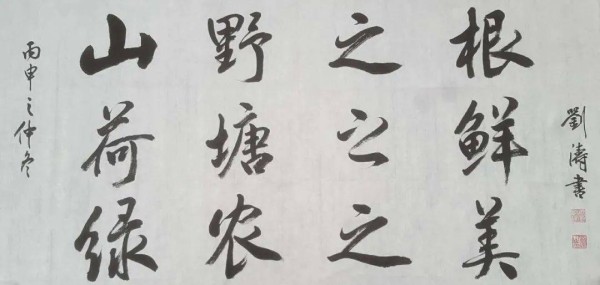 丙申之仲冬
山野之根
荷塘之鲜
绿农之美
劉涛書